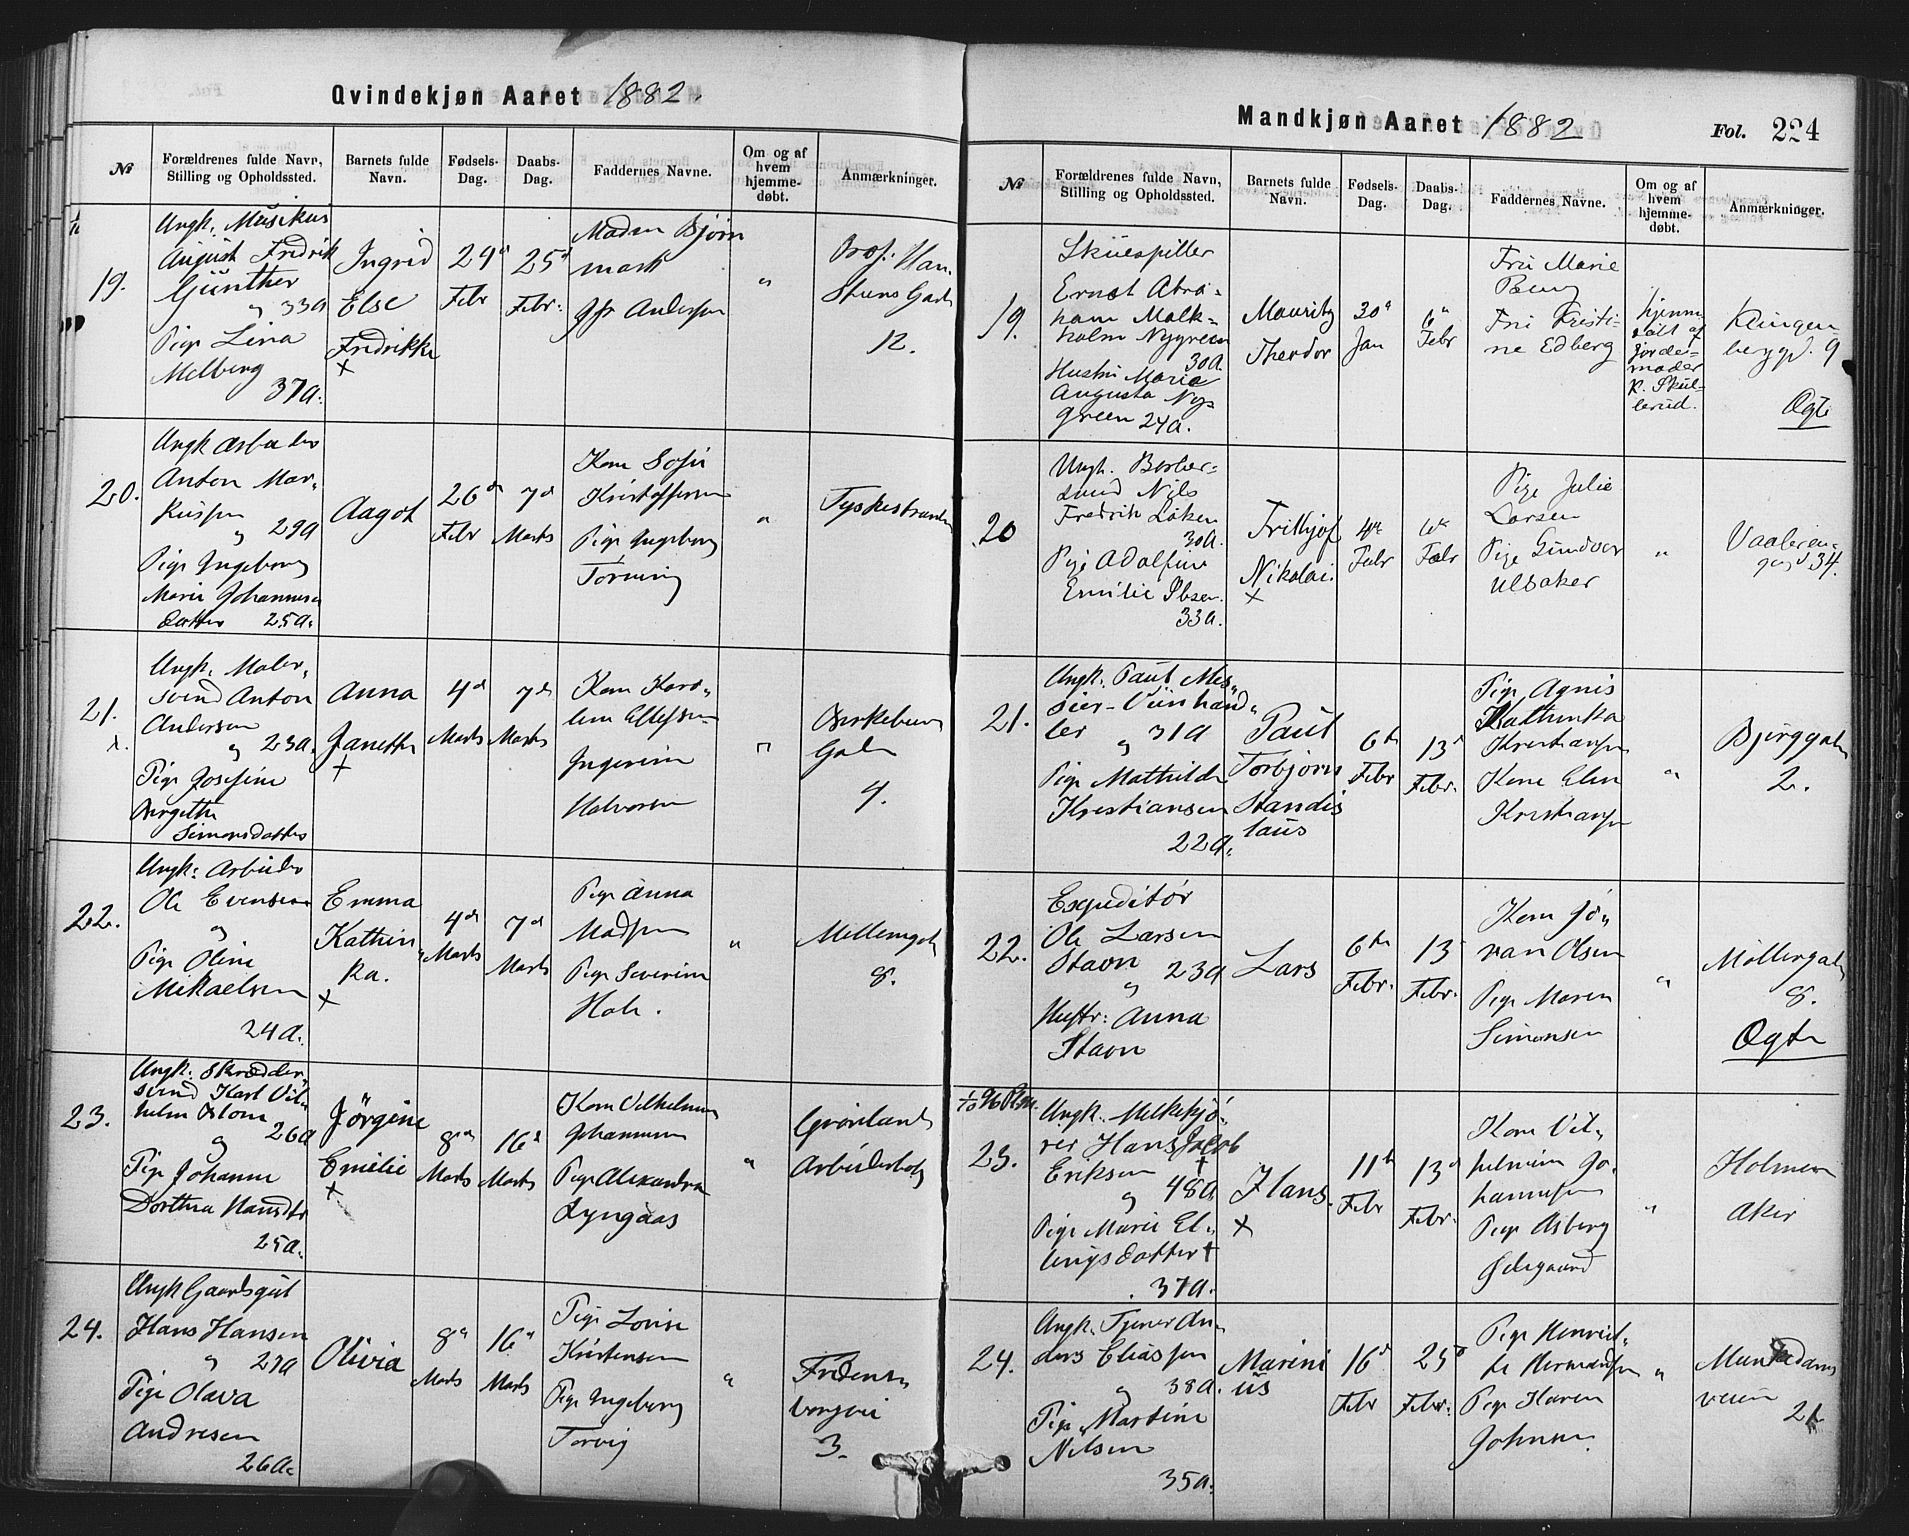 Qvindekjøn Aaret 1882.
№
Forældrenes fulde Navn,
Stilling og Opholdssted.
Barnets fulde
Navn.
Fødsels-
Dag.
Daabs-
Dag.
Faddernes Navne.
Om og af
hvem
hjemme-
døbt.
Anmærkninger.
19.
Ungk. Musikus
August Fredrik
Günther
33a
Pige Lina
Melberg
37a.
Ingrid
Else
Fredrikke
×
24d
Febr
25d
Febr.
Madm Bjørn
mark
Andersen
"
Prof. Han
stens Gade
12.
20.
Ungk Arbeider
Anton Mar-
kussen
og 29a
Pige Ingeborg
Marie Johannesen
datter 25a.
Aagot
26d
Febr
7d
Marts
Kone Sofie
Kristoffersen
Pige Ingeborg
Torning
"
Tyskestranden
21.
Ungk. Maler-
svend Anton
Andersen
og 23a.
Pige Josefine
Birgitte
Simonsdatter
Anna
Janette
+
4d
Marts
7d
Marts
Kone Karo-
line Ellefsen
Ingerine
Halvorsen
"
Birkebeiner
Gade
4.
22.
Ungk. Arbeider
Ole Evensen
og
Pige Oline
Mikaelsen
24a.
Emma
Kathrin
ka.
×
4d
Marts
7d
Marts
Pige Anna
Madsen
Pige Severine
Hole.
"
Mellemgade
8.
23.
Ungk. Skrædder-
svend Karl Vil-
helm Blom
og 26a
Pige Johanne
Dorthea Hansdtr
25a.
Jørgine
Emilie
×
8d
Marts
16d
Marts
Kone Vilhelmine
Johannesen
Pige Alexandra
Lyngaas
"
Grønland
Arbeiderbolig
24.
Ungk Gaardsgut
Hans Hansen
og 27a
Pige Olava
Andresen
26a.
Olivia
8d
Marts
16d
Marts
Pige Lovise
Kristensen
Pige Ingeborg
Torvig
"
Fredens-
borgvei
3.
Mandkjøn Aaret 1882
Fol. 224
№
Forældrenes fulde Navn,
Stilling og Opholdssted.
Barnets fulde
Navn.
Fødsels-
Dag.
Daabs-
Dag.
Faddernes Navne.
Om og af
hvem
hjemme-
døbt.
Anmærkninger.
19.
Skuespiller
Ernst Abra-
ham Malk-
holm Nygreen
30a.
Hustru Maria
Augusta Ny-
green 24a.
Mauritz
Theodor
30d
Jan
6d
Febr
Fru Marie
Berg
Fru Kristi-
ne Edberg
hjemme
døbt af
Jorde-
moder
K. Skul-
lerud.
Klingen-
berggd. 9
Ægte
20
Ungk. Barber-
svend Nils
Fredrik Løken
30a.
Pige Adolfine
Emilie Ibsen
33a.
Frithjof
Nikolai
×
4de
Febr
6te
Febr
Pige Julie
Larsen
Pige Gundvor
Ulsaker
"
Vaaleren-
gen 34.
21.
Ungk. Paul Mes-
sier - Viinhand-
ler og 31a
Pige Mathilde
Kristiansen
22a.
Paul
Torbjørn
Standis
laus
6te
Febr
13d
Febr.
Pige Agnis
Kathinka
Kristiansen
Kone Elen
Kristiansen
"
Bjerggaden
2.
22.
Expeditør
Ole Larsen
Stavn 23a
og
Hustr: Anna
Stavn
Lars
6te
Febr.
13
Febr.
Kone Jø-
ran Olsen
Pige Maren
Simonsen
"
Møllergaden
8.
Ægte
23.
Ungk. Melkekjø-
rer Hans Jacob
Eriksen +
og 48a.
Pige Marie El-
lingsdatter +
37a.
Hans
×
11te
Febr
13d
Febr.
Kone Vil-
helmine Jo-
hannesen
Pige Asberg
Ødegaard
"
Holmen
Aker
24.
Ungk. Tjener An-
ders Eliassen
og 38a.
Pige Martine
Nilsen
35a.
Marini
us
16d
Febr
25d
Febr.
Pige Henriet-
te Hermansen
Pige Karen
Johnsen
"
Munkedams
veien
21